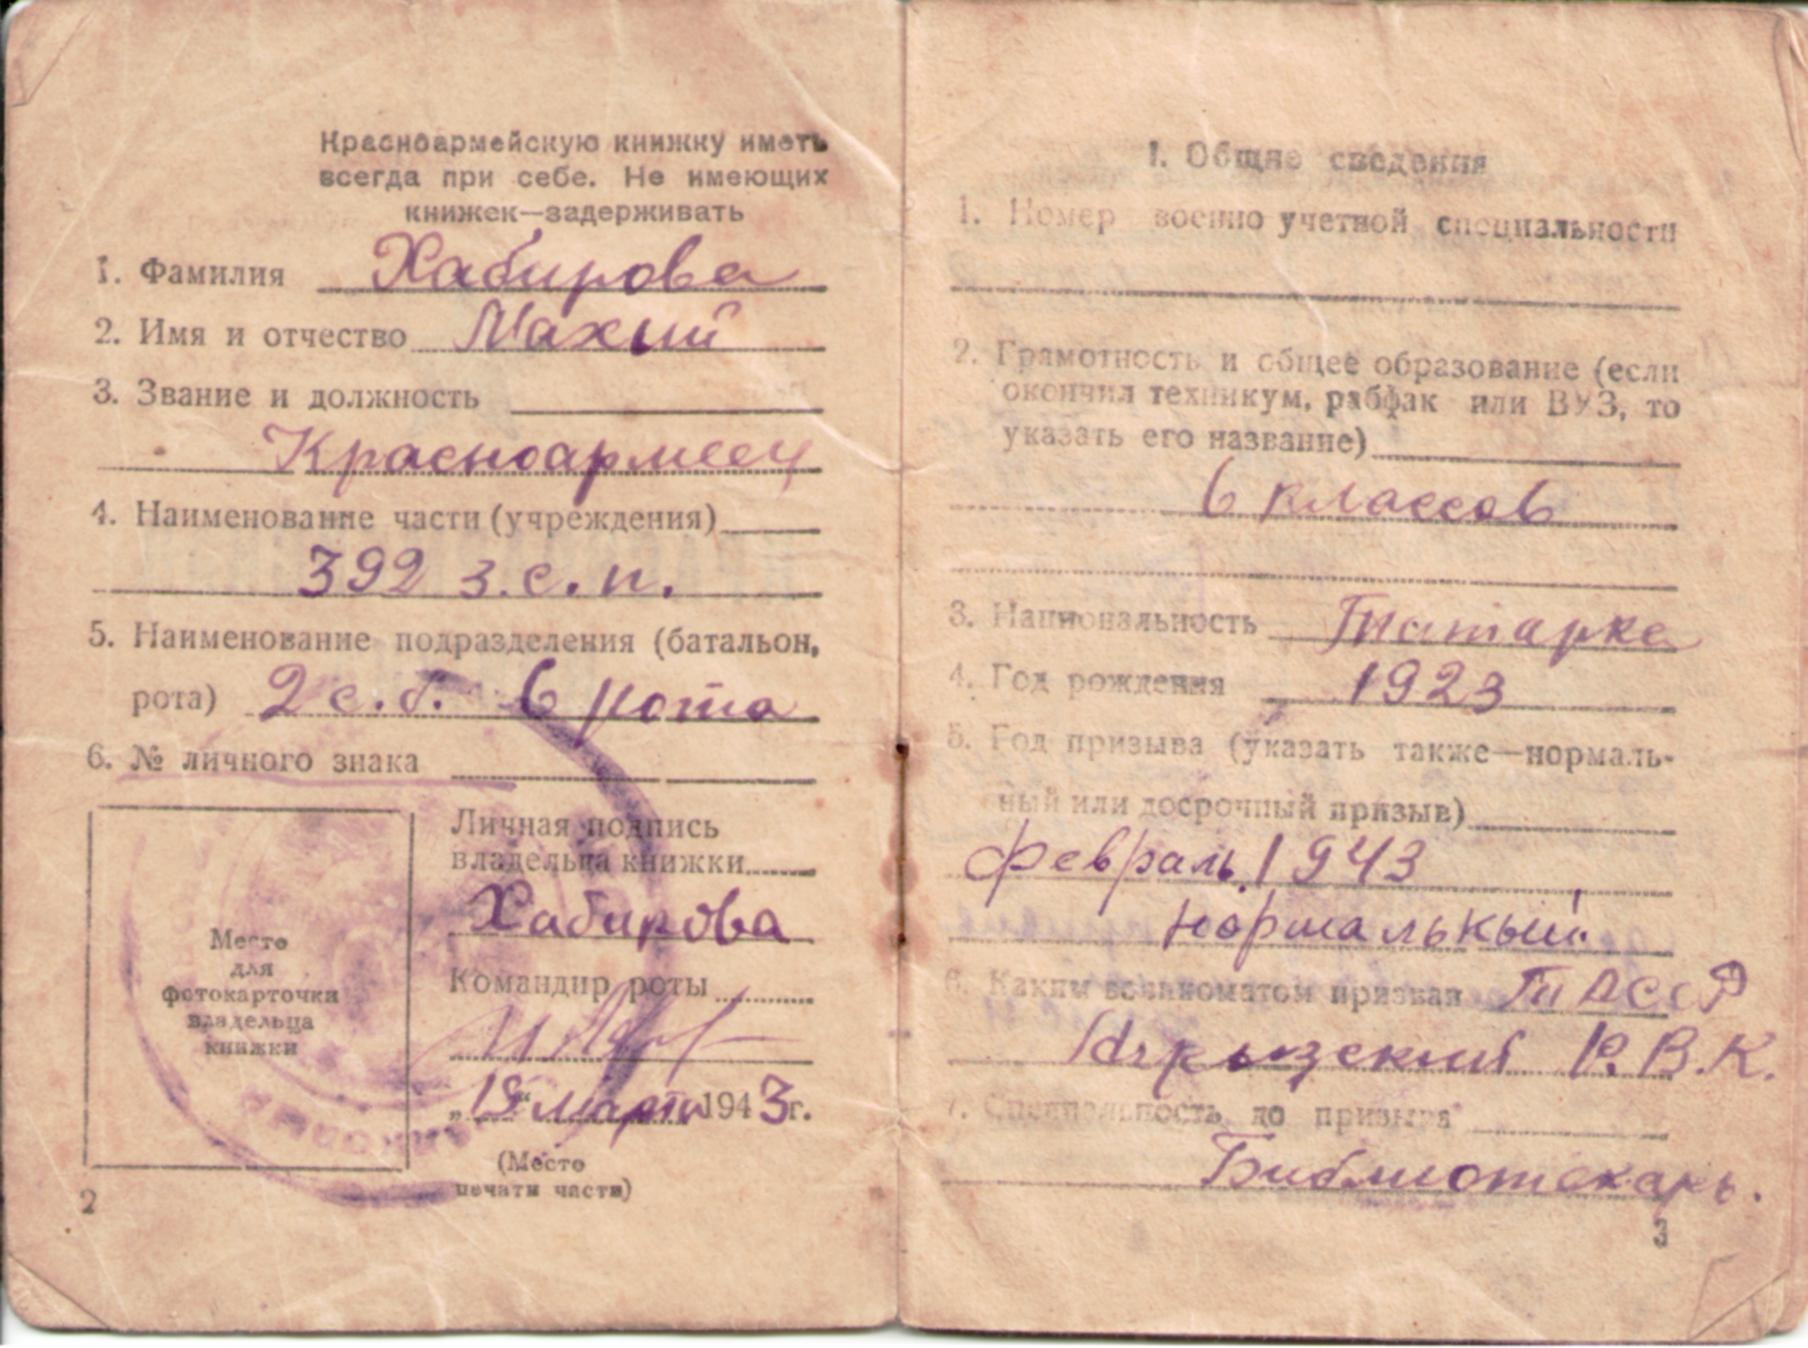 Красноармейскую книжку иметь
всегда при себе. Не имеющих
книжек—задерживать
1. Фамилия Хабирова
2. Имя и отчество Махий
3. Звание и должность
Красноармеец
4. Наименование части (учреждения)
392 з.с.п.
5. Наименование подразделения (батальон,
рота) 2 с.б. 6 рота
6. № личного знака
Место
для
фотокарточки
владельца
книжки
Личная подпись
владельца книжки
Хабирова
Командир роты
„15“ марта 1943г.
(Место
печати части)
2
1. Общие сведения
1. Номер военно учетной специальности
2. Грамотность и общее образование (если
окончил техникум, рабфак или ВУЗ, то
указать его название)
6 классов
3. Национальность Татарка
4. Год рождения 1923
5. Год призыва (указать также—нормаль-
ный или досрочный призыв)
февраль 1943
нормальный.
6. Каким военкоматом призван ТАССР
Р.В.К.
7. Специальность до призыва
Библиотекарь.
3